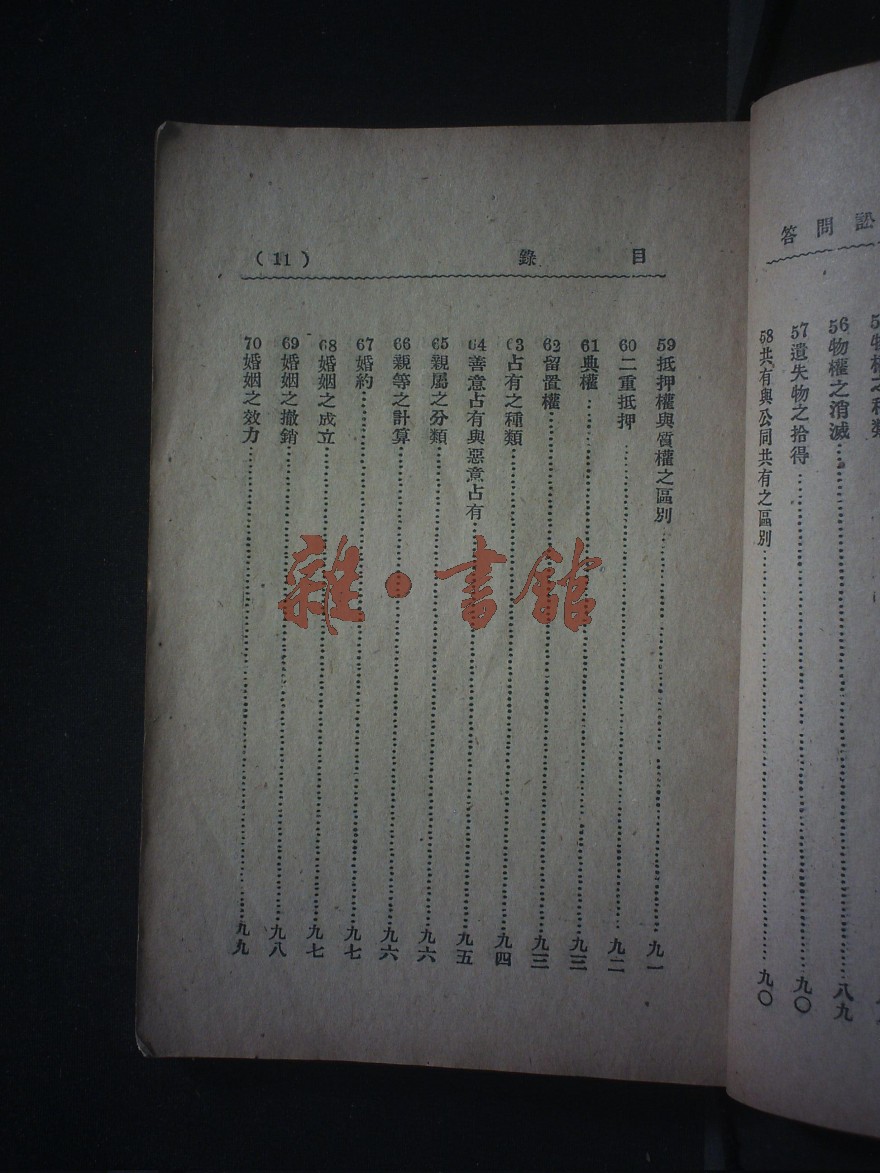 訟問答
56物權之消滅……八九
57遺失物之拾得……九〇
58共有與公同共有之區別……九〇
目錄 (11)
59抵押權與質權之區別……九一
60二重抵押……九二
61典權……九三
62留置權……九三
63占有之種類……九四
64善意占有與惡意占有……九五
65親屬之分類……九六
66親等之計算……九六
67婚約……九七
68婚姻之成立……九七
69婚姻之撤銷……九八
70婚姻之效力……九九
雜·書館